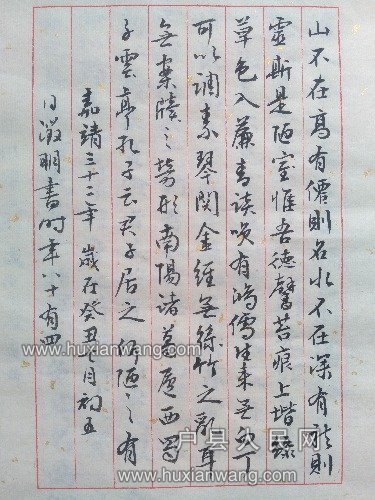 山不在高有僊則名水不在深有龍則
靈斯是陋室惟吾德馨苔痕上堦綠
草色入簾青談笑有鴻儒往來無白丁
可以調素琴閱金經無絲竹之亂耳
無案牘之勞形南陽諸葛廬西蜀
子雲亭孔子云君子居之何陋之有
嘉靖三十二年歲在癸丑七月初五
日徵明書時年八十有四
www.huxianwang.com
www.huxianwang.com
www.huxianwang.com